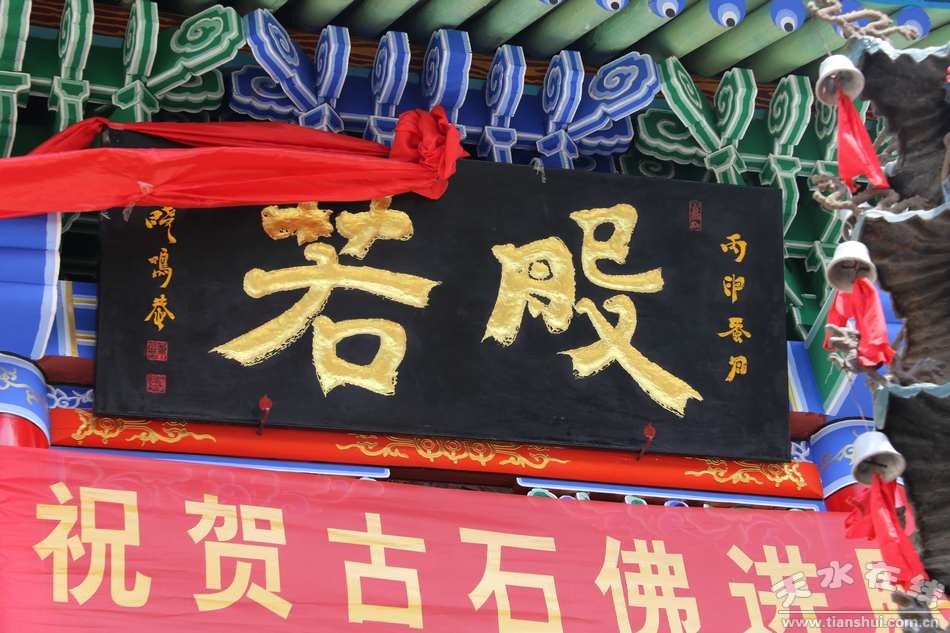 丙申蚕月
般若
晓鸣恭
祝贺古石佛进
天水在线
www.tianshui.com.cn